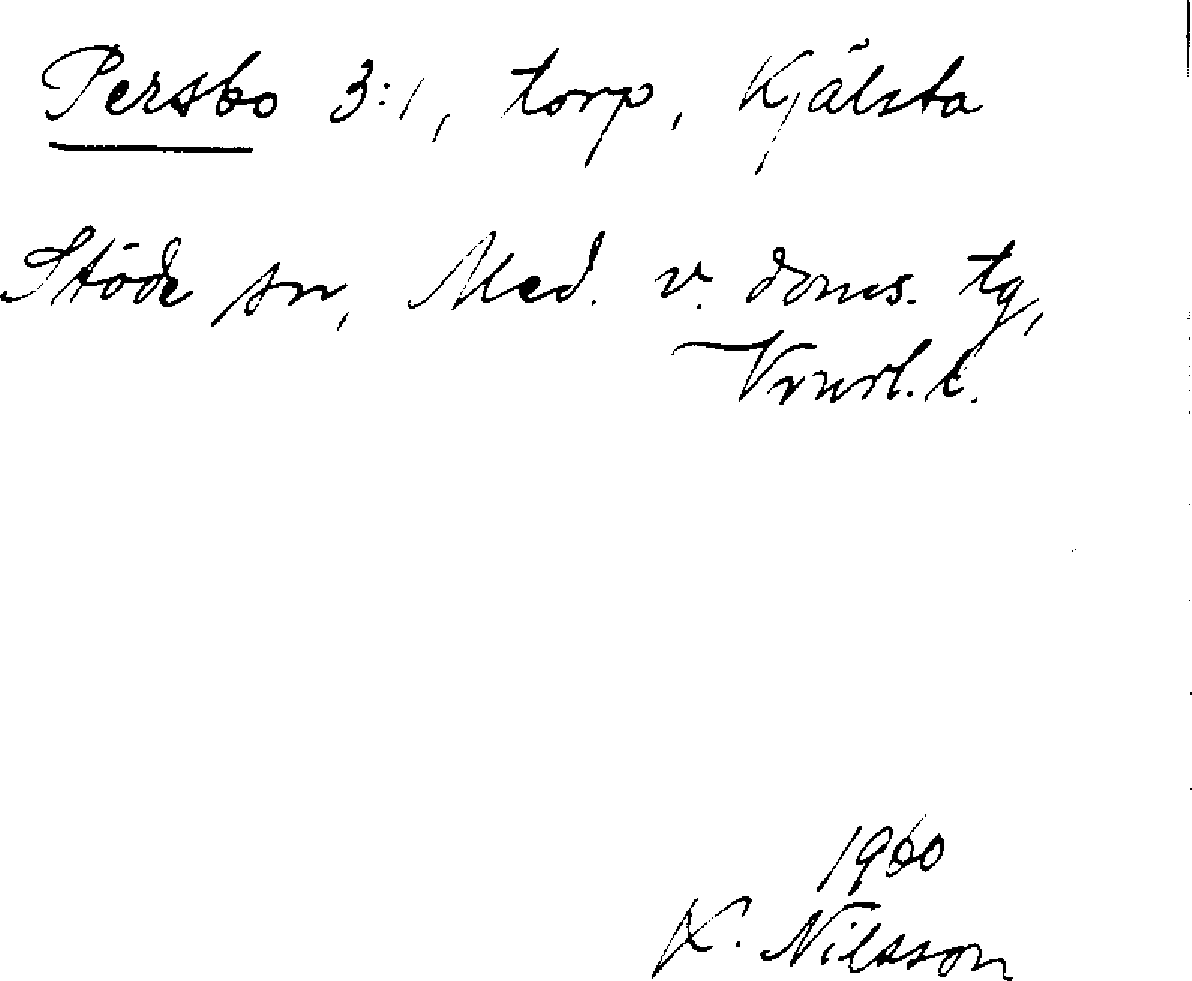 Persbo 3:1, torp, Kjälsta
Stöde sn, Med. v. doms. tg,
Vnorl. l.
1960
K. Nilsson